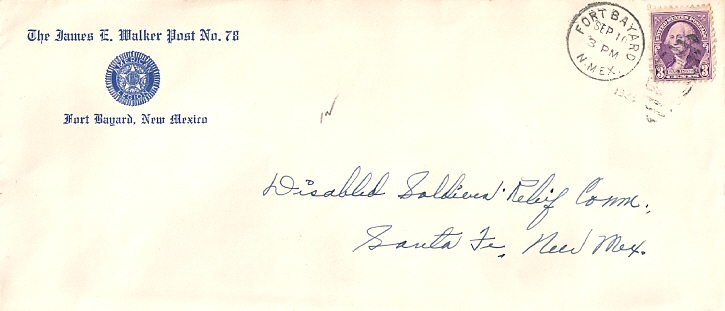 The James E. Walker Post No. 78
AMERICAN
LEGION
Fort Bayard, New Mexico
FORT BAYARD
SEP 10
3 PM
N. MEX.
3 3
Disabled Soldiers' Relief Comm.
Santa Fe, New Mex.